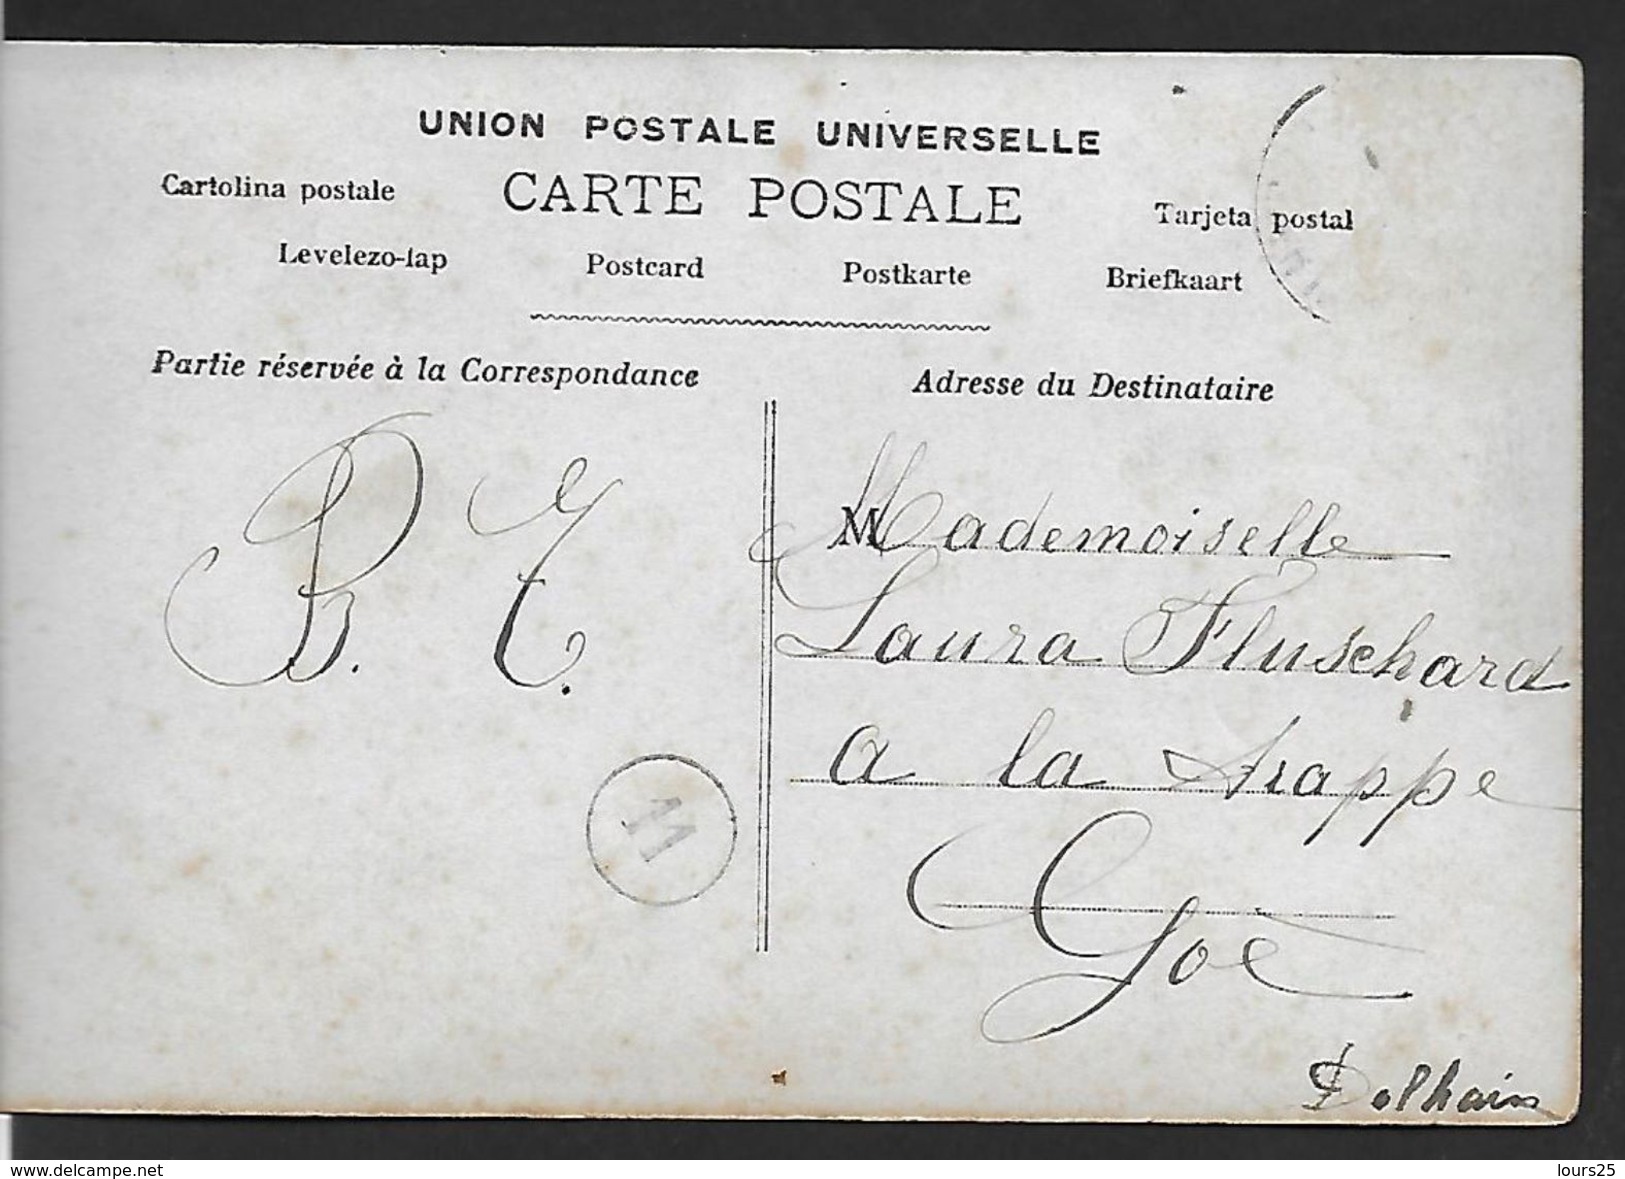 UNION POSTALE UNIVERSELLE
Cartolina postale CARTE POSTALE Tarjeta postal
Levelezo-lap Postcard Postkarte Briefkaart
Partie réservée à la Correspondance
Adresse du Destinataire
B. T.
M
Mademoiselle
Laura Fluschard
a la trappe
Goé
Dolhain
www.delcampe.net
lours25